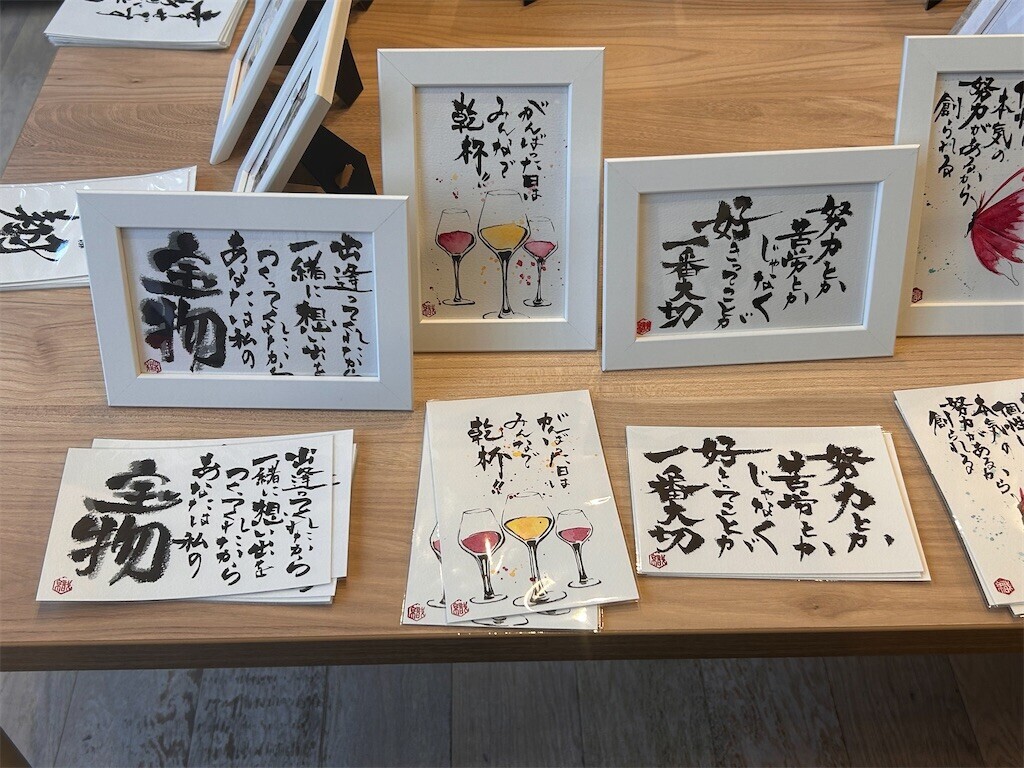 出逢ってくれたから
一緒に想い出を
つくってくれたから
あなたは私の
宝物
がんばった日は
みんなで
乾杯!!
努力とか
苦労とか
じゃなく
好きってことが
一番大切
本気の
努力があるから
創られる
出逢ってくれたから
一緒に想い出を
つくってくれたから
あなたは私の
宝物
がんばった日は
みんなで
乾杯!!
努力とか
苦労とか
じゃなく
好きってことが
一番大切
個性は
本気の
努力があるから
創られる